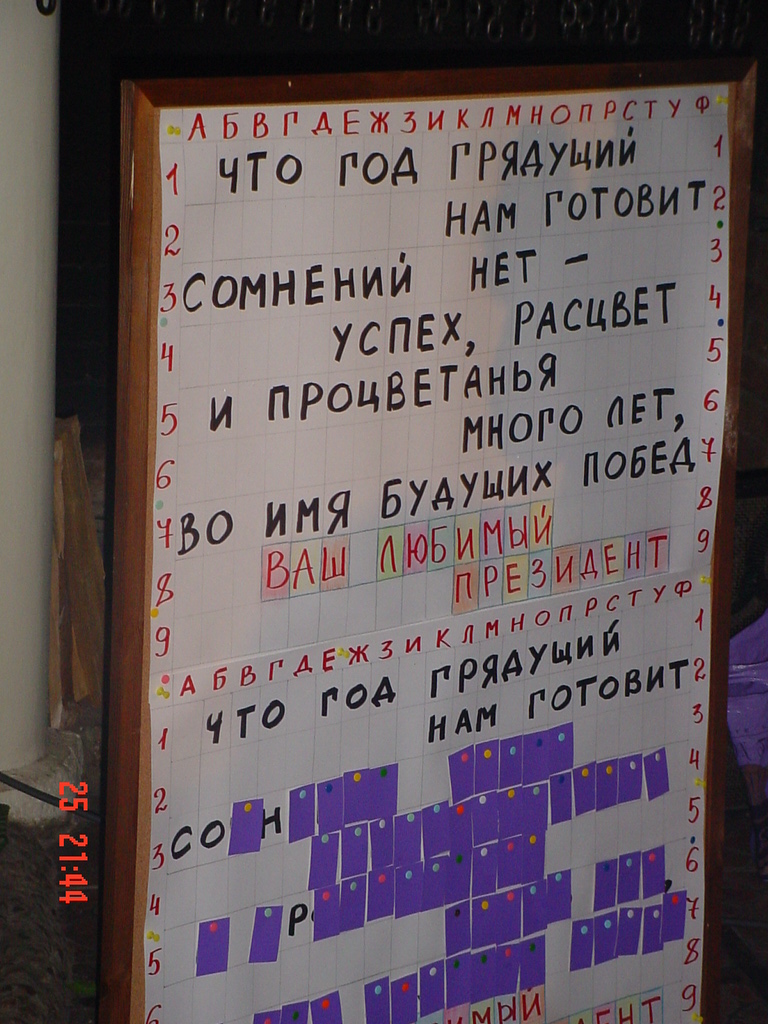 А Б В Г Д Е Ж З И К Л М Н О П Р С Т У Ф
1 ЧТО ГОД ГРЯДУЩИЙ 1
2 НАМ ГОТОВИТ 2
3 СОМНЕНИЙ НЕТ – 3
4 УСПЕХ, РАСЦВЕТ 4
5 И ПРОЦВЕТАНЬЯ 5
6 МНОГО ЛЕТ, 6
7 ВО ИМЯ БУДУЩИХ ПОБЕД 7
8 ВАШ ЛЮБИМЫЙ 8
9 ПРЕЗИДЕНТ 9
А Б В Г Д Е Ж З И К Л М Н О П Р С Т У Ф
1 ЧТО ГОД ГРЯДУЩИЙ 1
2 НАМ ГОТОВИТ 2
3 СО Н 3
4 4
5 Р 5
6 , 6
7
8
9
25 21:44